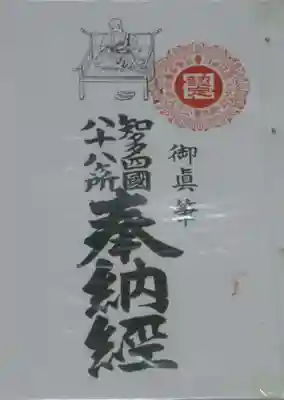 御眞筆
知多四國
八十八ヶ所
奉納經